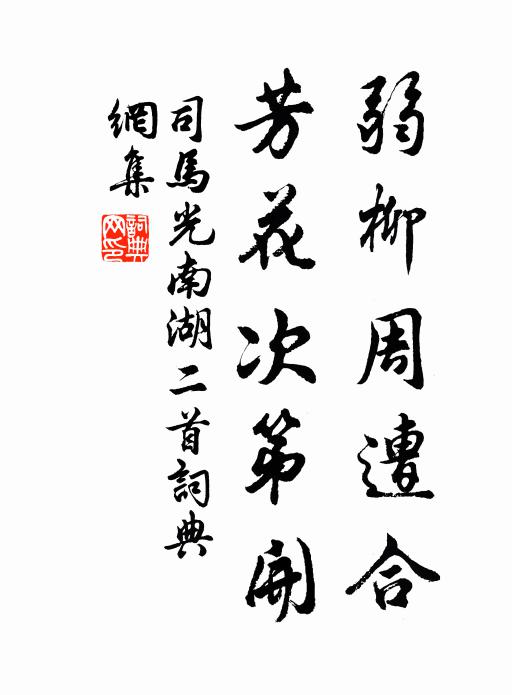 弱柳周遭合
芳花次第開
司馬光南湖二首詞典
網集
詞典網印